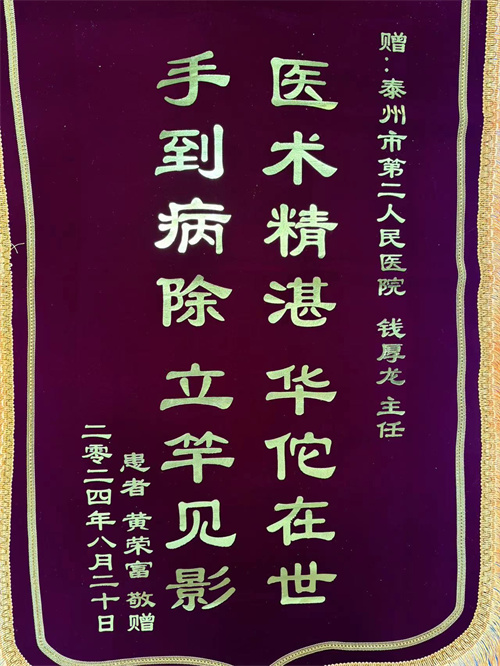 赠：泰州市第二人民医院 钱厚龙主任
医术精湛 华佗在世
手到病除 立竿见影
患者 黄荣富 敬赠
二零二四年八月二十日